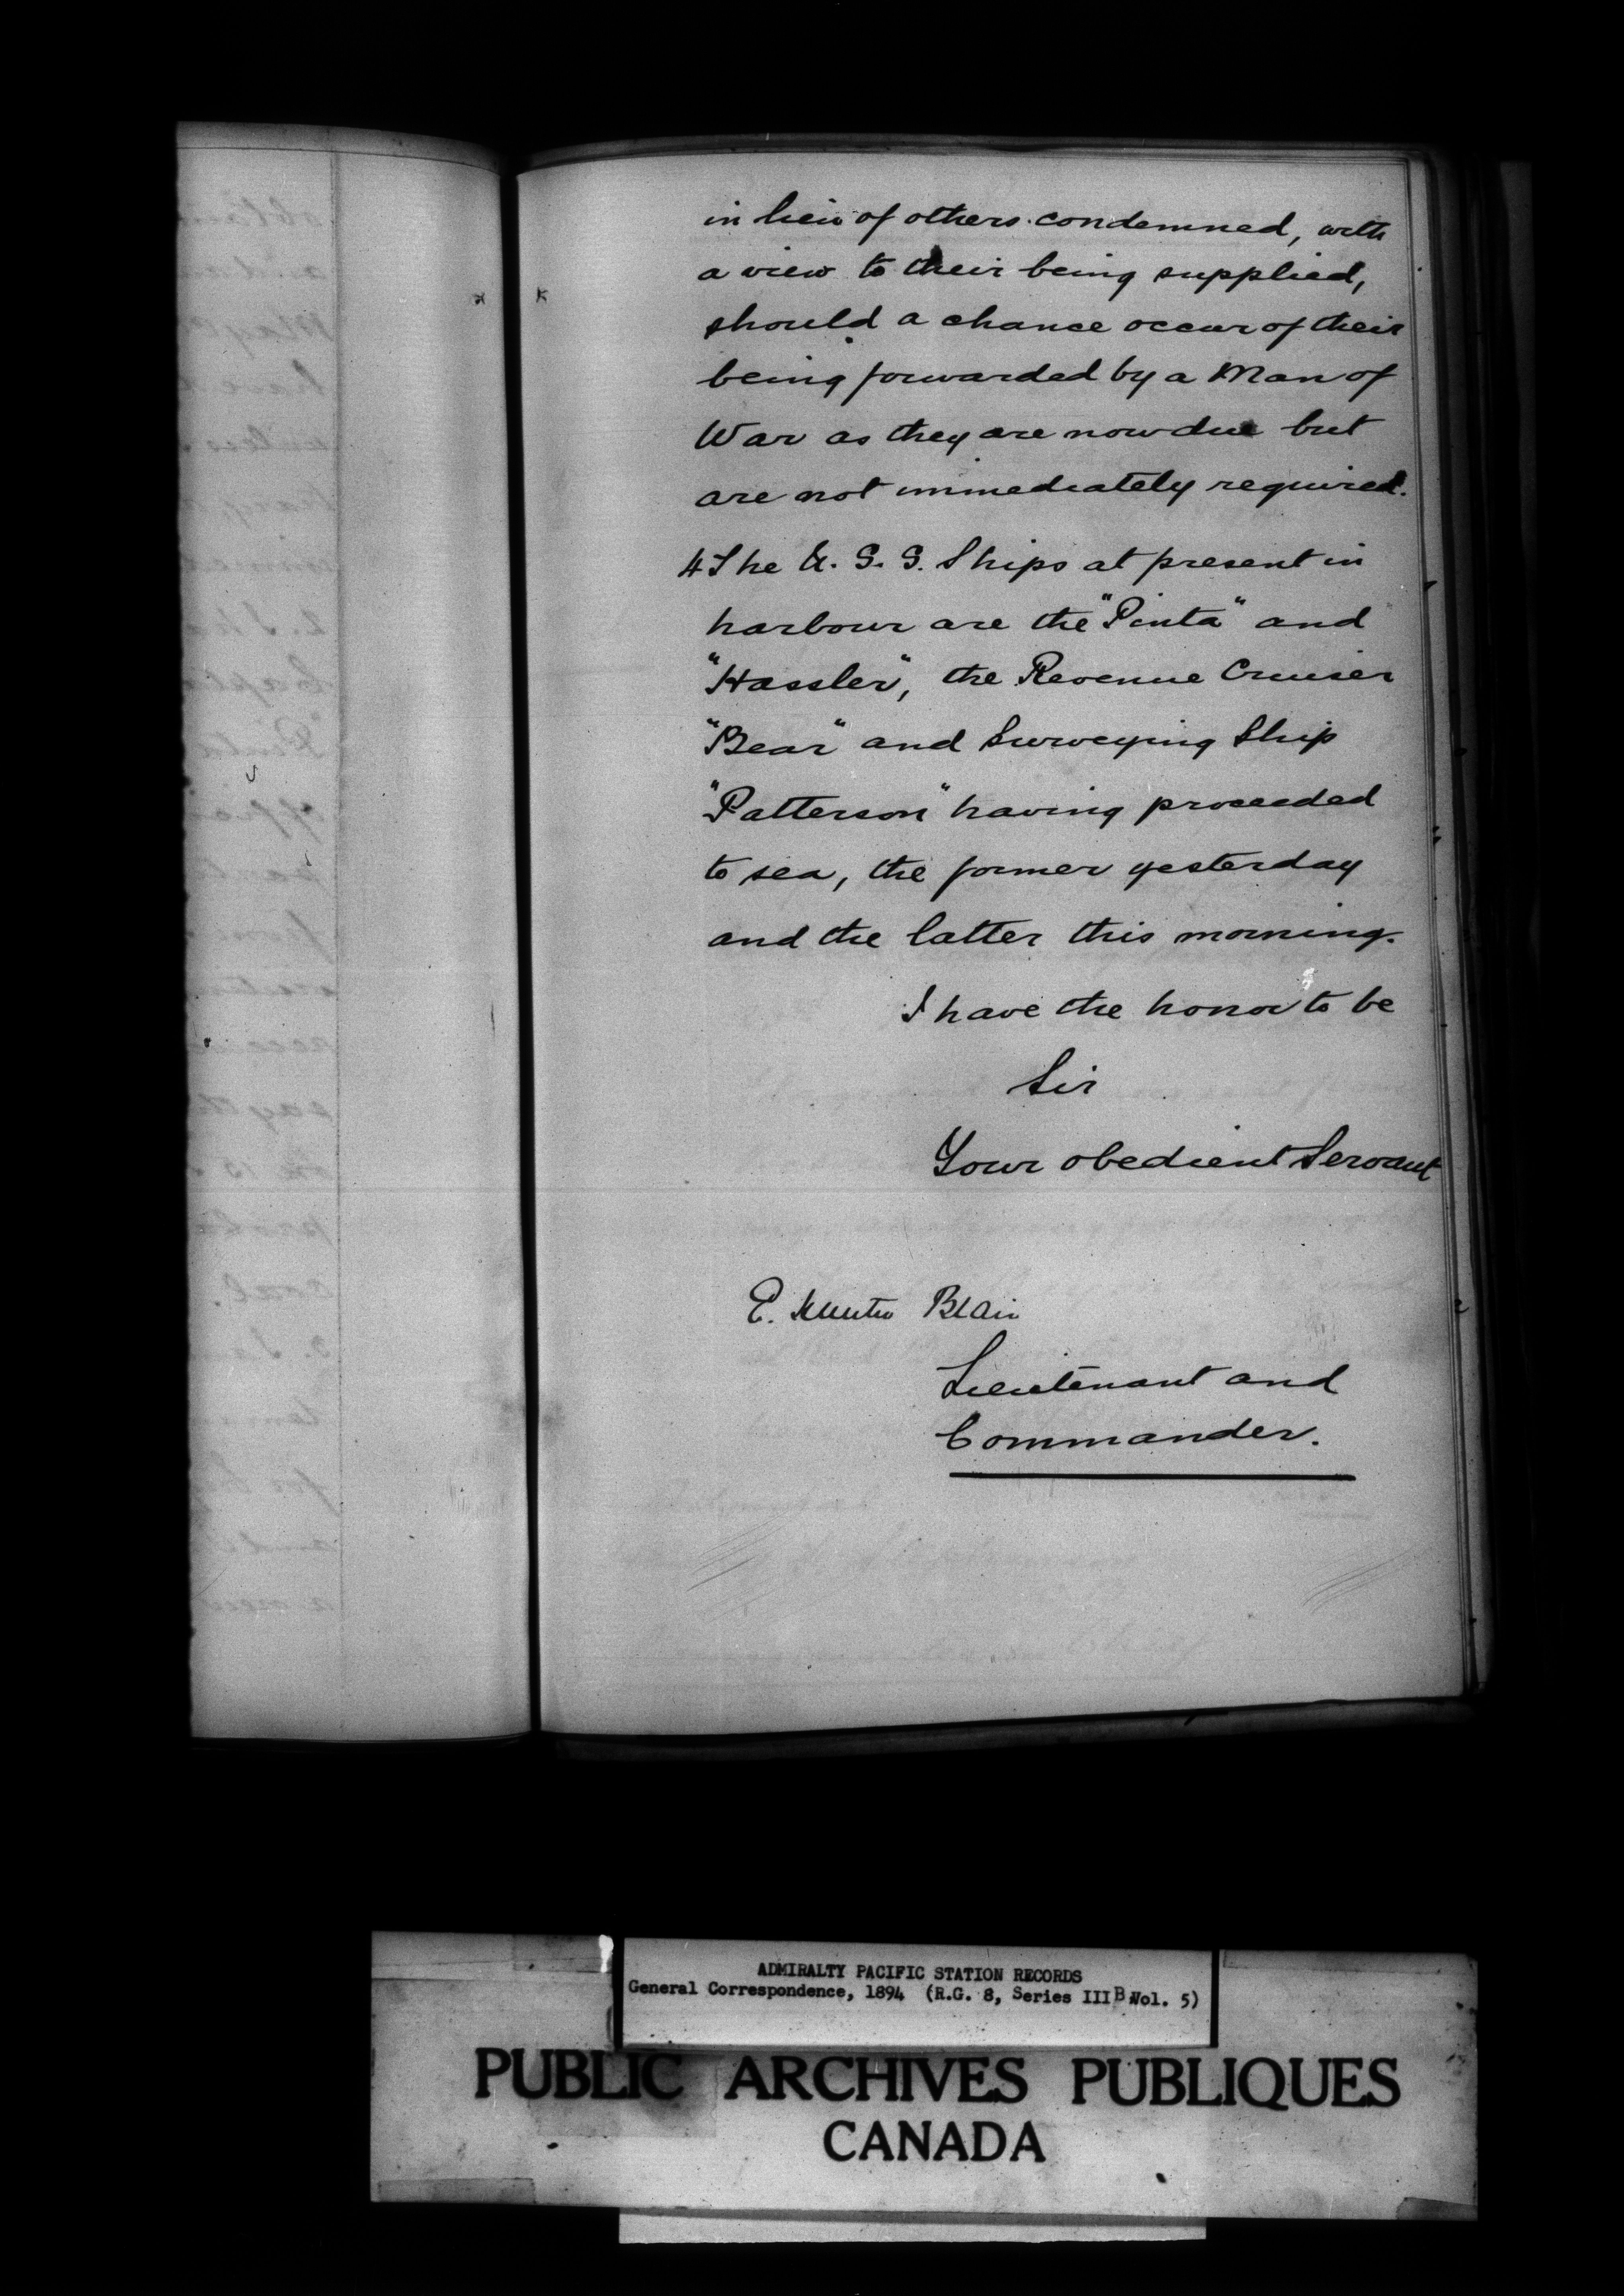 in lieu of others condemned, with
a view to their being supplied,
should a chance occur of their
being forwarded by a Man of
War as they are now due but
are not immediately required.
4 The U. S. S. Ships at present in
harbour are the "Pinta" and
"Hassler", the Revenue Cruiser
"Bear" and Surveying Ship
"Patterson" having proceeded
to sea, the former yesterday
and the latter this morning.
I have the honor to be
Sir
Your obedient Servant
E. Hunter Blair
Lieutenant and
Commander.
ADMIRALTY PACIFIC STATION RECORDS
General Correspondence, 1894 (R.G. 8, Series III B Vol. 5)
PUBLIC ARCHIVES PUBLIQUES
CANADA